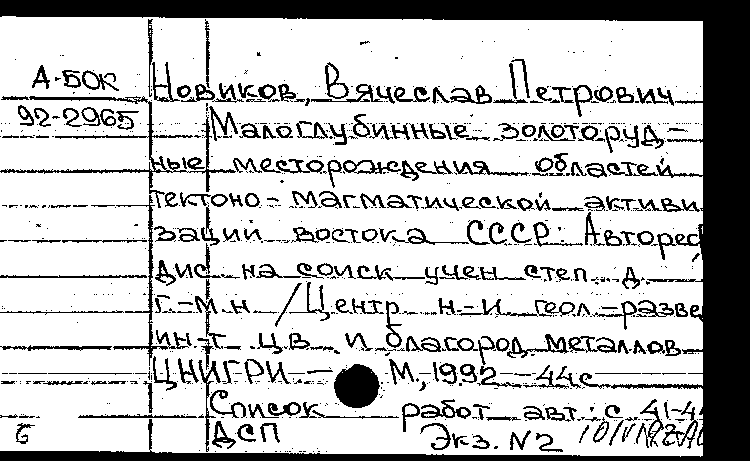 А-БОК
Новиков, Вячеслав Петрович
92-2965
Малоглубинные золоторуд-
ные месторождения областей
тектоно-магматической активи
зации востока СССР: Автореф
дис. на соиск учен степ. д.
г.-м.н / Центр н-и геол.-разве
ин-т цв. и благород. металлов
ЦНИГРИ. – М., 1992 – 44с
Список работ авт.: с 41-4
б ДСП Экз. N2